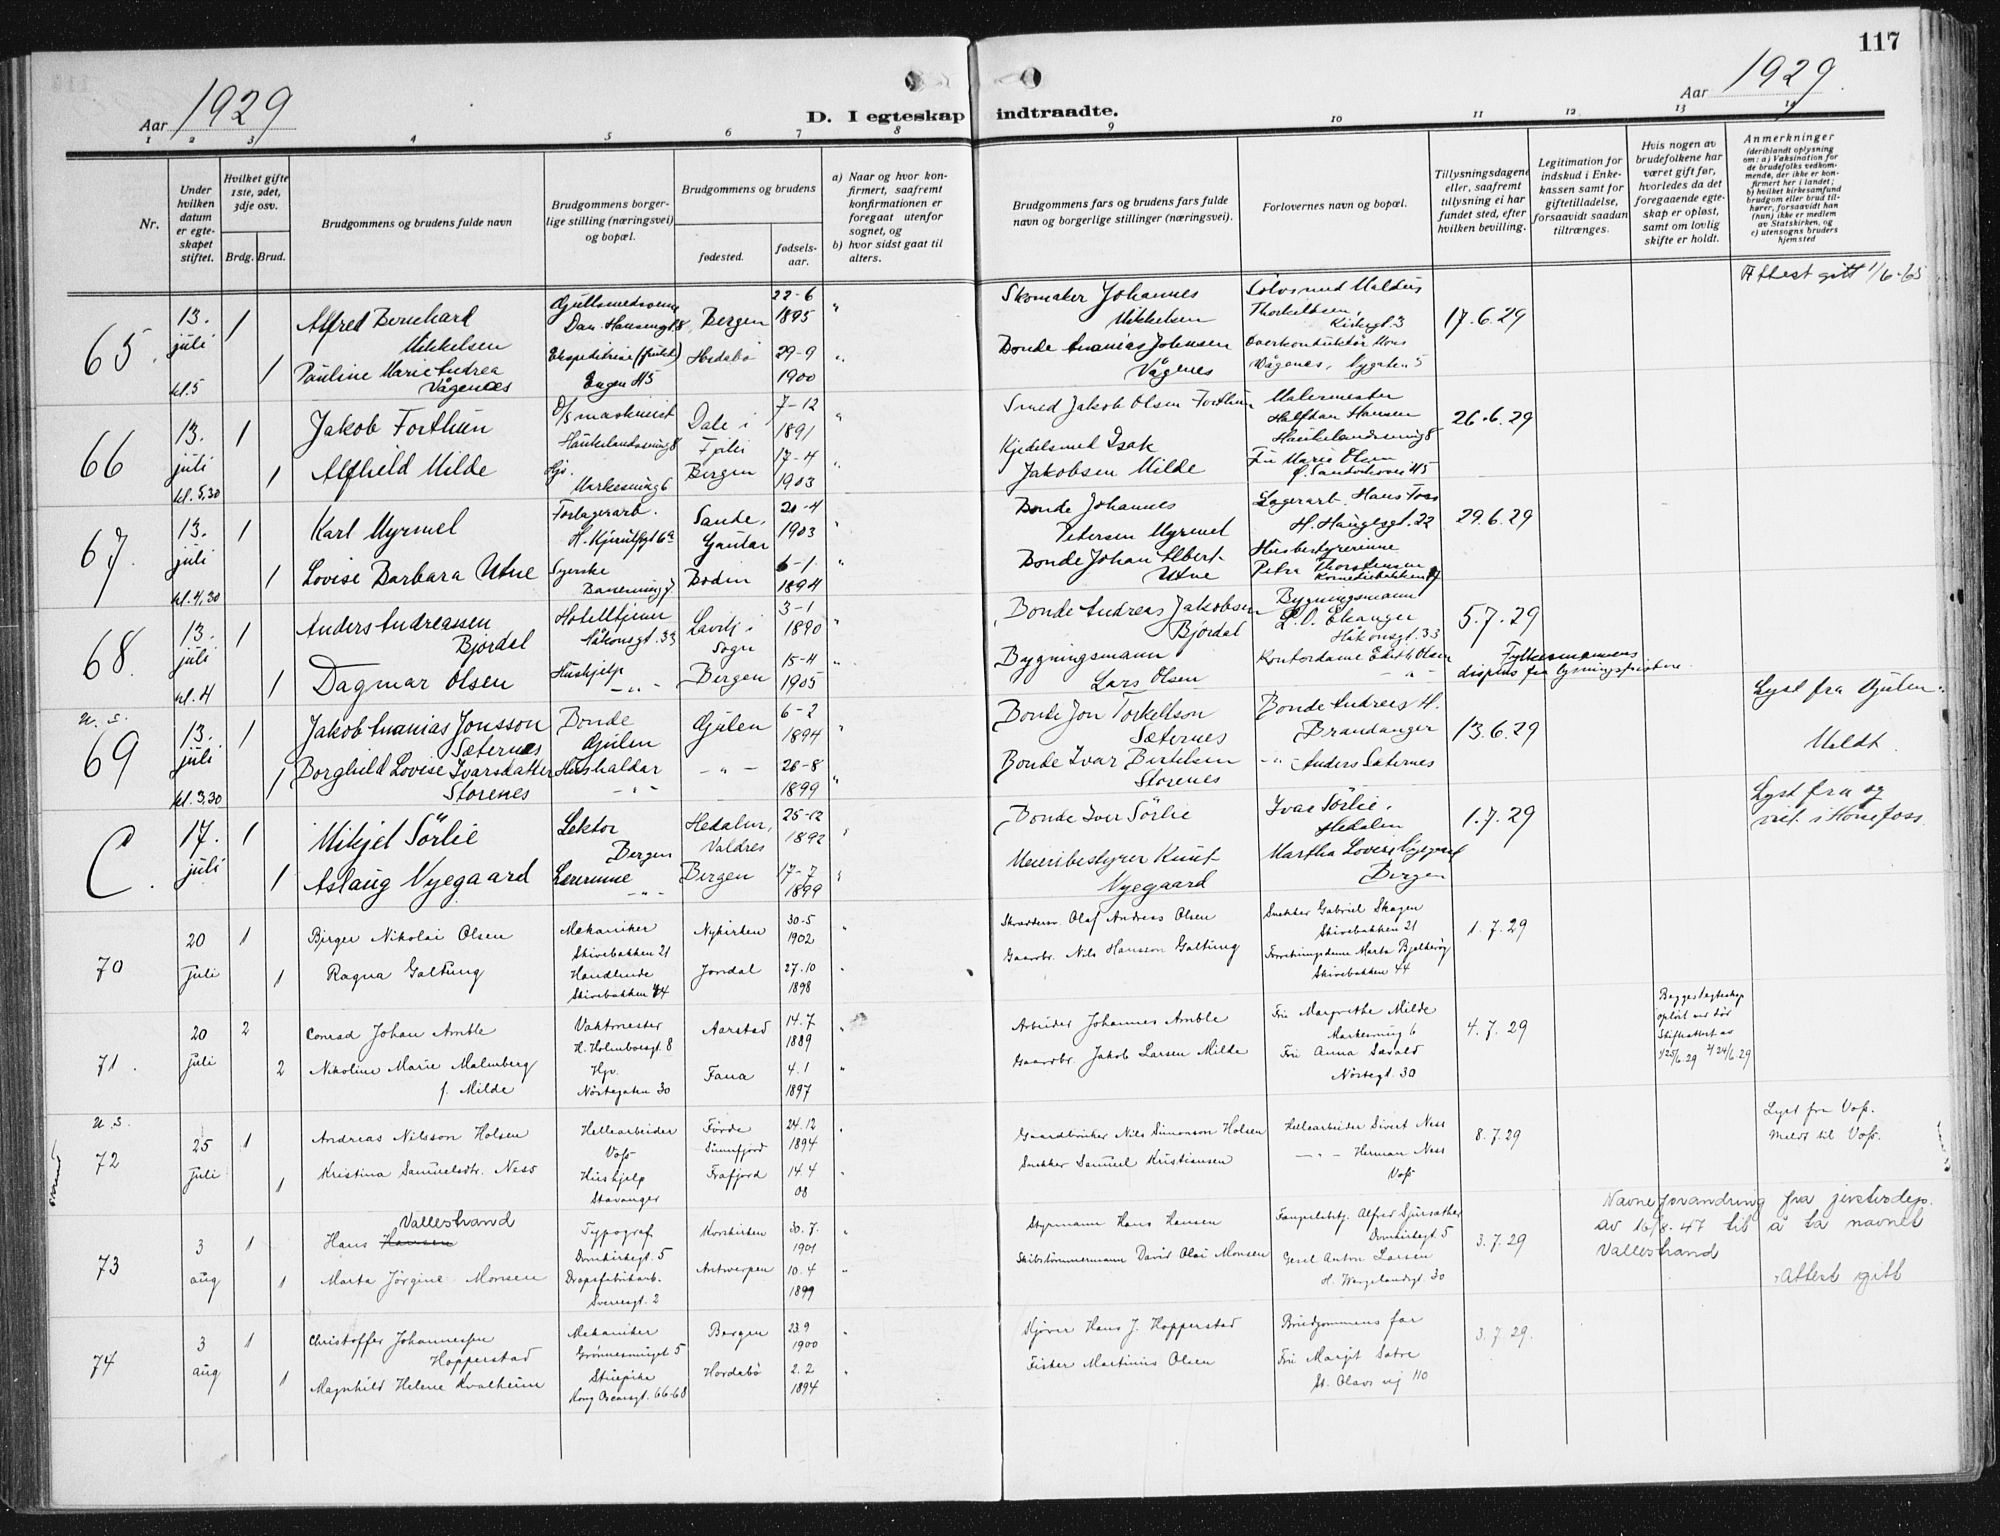 117
Aar 1929
D. I egteskap indtraadte.
Aar 1929
1 2 3 4 5 6 7 8 9 10 11 12 13 14
Nr.
Under hvilken datum er egteskapet stiftet.
Hvilket gifte 1ste, 2det, 3dje osv.
Brdg. Brud.
Brudgommens og brudens fulde navn
Brudgommens borgerlige stilling (næringsvei) og bopæl.
Brudgommens og brudens
fødested.
fødselsaar.
a) Naar og hvor konfirmert, saafremt konfirmationen er foregaat utenfor sognet, og
b) hvor sidst gaat til alters.
Brudgommens fars og brudens fars fulde navn og borgerlige stillinger (næringsvei).
Forlovernes navn og bopæl.
Tillysningsdagene eller, saafremt tillysning ei har fundet sted, efter hvilken bevilling.
Legitimation for indskud i Enkekassen samt for giftetilladelse, forsaavidt saadan tiltrænges.
Hvis nogen av brudefolkene har været gift før, hvorledes da det foregaaende egteskap er opløst, samt om lovlig skifte er holdt.
Anmerkninger
(deriblandt oplysning om: a) Vaksination for de brudefolks vedkommende, der ikke er konfirmert her i landet; b) hvilket kirkesamfund brudgom eller brud tilhører, forsaavidt han (hun) ikke er medlem av Statskirken, og c) utensogns bruders hjemsted
65. 13. juli kl. 5
1 Alfred Bernhard Mikkelsen
Gullsmedsvenn Dan. Hansensgt. 8, Bergen 22-6 1895
Skomaker Johannes Mikkelsen
Thorkelsen, Kirkegt. 3
17.6.29
Attest gitt 1/6-65
1 Pauline Marie Andrea Vågenes
Engen 45 29-9 1900
Bonde Ananias Johnsen Vågenes
Vågenes, Nygaten 5
66 13. juli kl. 5,30
1 Jakob Forthun
D/S maskinist Haukelandsveien 8 Dale i Fjaler 7-12 1891
Smed Jakob Olsen Forthun
Malermester Halfdan Hansen Haukelandsveien 8
26.6.29
1 Alfhild Milde
Hj. Markeveien 6 Bergen 17-4 1903
Kjedelsmed Isak Jakobsen Milde
Fru Marie Olsen
67. 13. juli kl. 4,30
1 Karl Myrmel
Sande, Gaular 20-4 1903
Bonde Johannes Petersen Myrmel
Lagerarb. Hans Foss H. Haugesgt. 22
29.6.29
1 Lovise Barbara Utne
Syerske Bodin 6-1 1894
Bonde Johan Albert Utne
Husbestyrerinne Petra Thorstensen
68. 13. juli kl. 4
1 Anders Andreassen Bjordal
Håkonsgt. 33 Lavik i Sogn 3-1 1890
Bonde Andreas Jakobsen Bjordal
Bygningsmann L. O. Ekanger Håkonsgt. 33
5.7.29
1 Dagmar Olsen
Hushjelp —"— Bergen 15-4 1905
Bygningsmann Lars Olsen
Kontordame Edith Olsen —"—
Fylkesmannens dispens fra lysningsfristene.
u.s.
69 13. juli kl. 3,30
1 Jakob Ananias Jonsson Sæternes
Bonde Gulen Gulen 6-2 1894
Bonde Jon Torkellson Sæternes
Bonde Andreas H. Brandanger
13.6.29
Lyst fra Gulen. Meldt.
1 Borghild Lovise Ivarsdatter Storenes
Husholder —"— —"— 26-8 1899
Bonde Ivar Bertelsen Storenes
—"— Anders Sæternes
C. 17. juli
1 Mikjel Sörlie
Lektor Bergen Hedalen, Valdres 25-12 1892
Bonde Iver Sörlie
Ivar Sörlie, Hedalen
1.7.29
Lyst fra og viet i Hönefoss.
1 Aslaug Nyegaard
Lærerinne —"— Bergen 17-7 1899
Meieribestyrer Knut Nyegaard
Martha Lovise Nyegaard Bergen
70 20 juli
1 Birger Nikolai Olsen
Mekaniker Skivebakken 21 Nykirken 30-5 1902
Skreddersv. Olaf Andreas Olsen
Snekker Gabriel Skagen Skivebakken 21
1.7.29
1 Ragna Galtung
Handlende Skivebakken 44 Jondal 27.10 1898
Gaardbr. Nils Hansson Galtung
Forretningsdame Marta Skivebakken 44
71. 20 juli
2 Conrad Johan Amble
Vaktmester H. Holmboesgt. 8 Aarstad 14.7 1889
Arbeider Johannes Amble
Fru Margrethe Milde Markeveien 6
4.7.29
Begges egteskap opløst ved død Skifteattest av 1/25/6.29 2/24/6.29
2 Nikoline Marie Malmberg f. Milde
Hv. Nöstegaten 30 Fana 4.1 1897
Gaardbr. Jakob Larsen Milde
Fru Anna Sævold Nöstegt. 30
u.s.
72 25 juli
1 Andreas Nilsson Holsen
Hellearbeider Voss Förde Sunnfjord 24.12 1894
Gaardbruker Nils Simonson Holsen
Hellearbeider Sivert Ness
8.7.29
Lyst fra Voss. Meldt til Voss.
1 Kristina Samuelsdtr. Ness
Hushjelp Stavanger Frafjord 14.4 08
Snekker Samuel Kristiansen
—"— Herman Ness Voss
73 3 aug
1 Hans Hansen Vallestrand
Typograf Domkirkegt. 5 Korskirken 30.7. 1901
Styrmann Hans Hansen
Alfred Gjersæther Domkirkegt 5
3.7.29
Navneforandring fra justisdep. av 16/8-47 til å ta navnet Vallestrand
1 Marta Jörgine Monsen
Dropsfabrikarb. Sverresgt. 2 Antwerpen 10.4 1899
Skibstömmermann David Olai Monsen
Gesel Anton Larsen H. Wergelandsgt. 30
Attest gitt
74 3 aug
1 Christoffer Johannessen Hopperstad
Mekaniker Grönnesmuget 5 Bergen 23.9 1900
Kjörer Hans J. Hopperstad
Brudgommens far
3.7.29.
1 Magnhild Helene Kvalheim
Stuepike Kong Oscarsgt. 66-68 Hordabö 2.2 1894
Fisker Martinus Olsen
Fru Margit Sætre St. Olavs vej 110